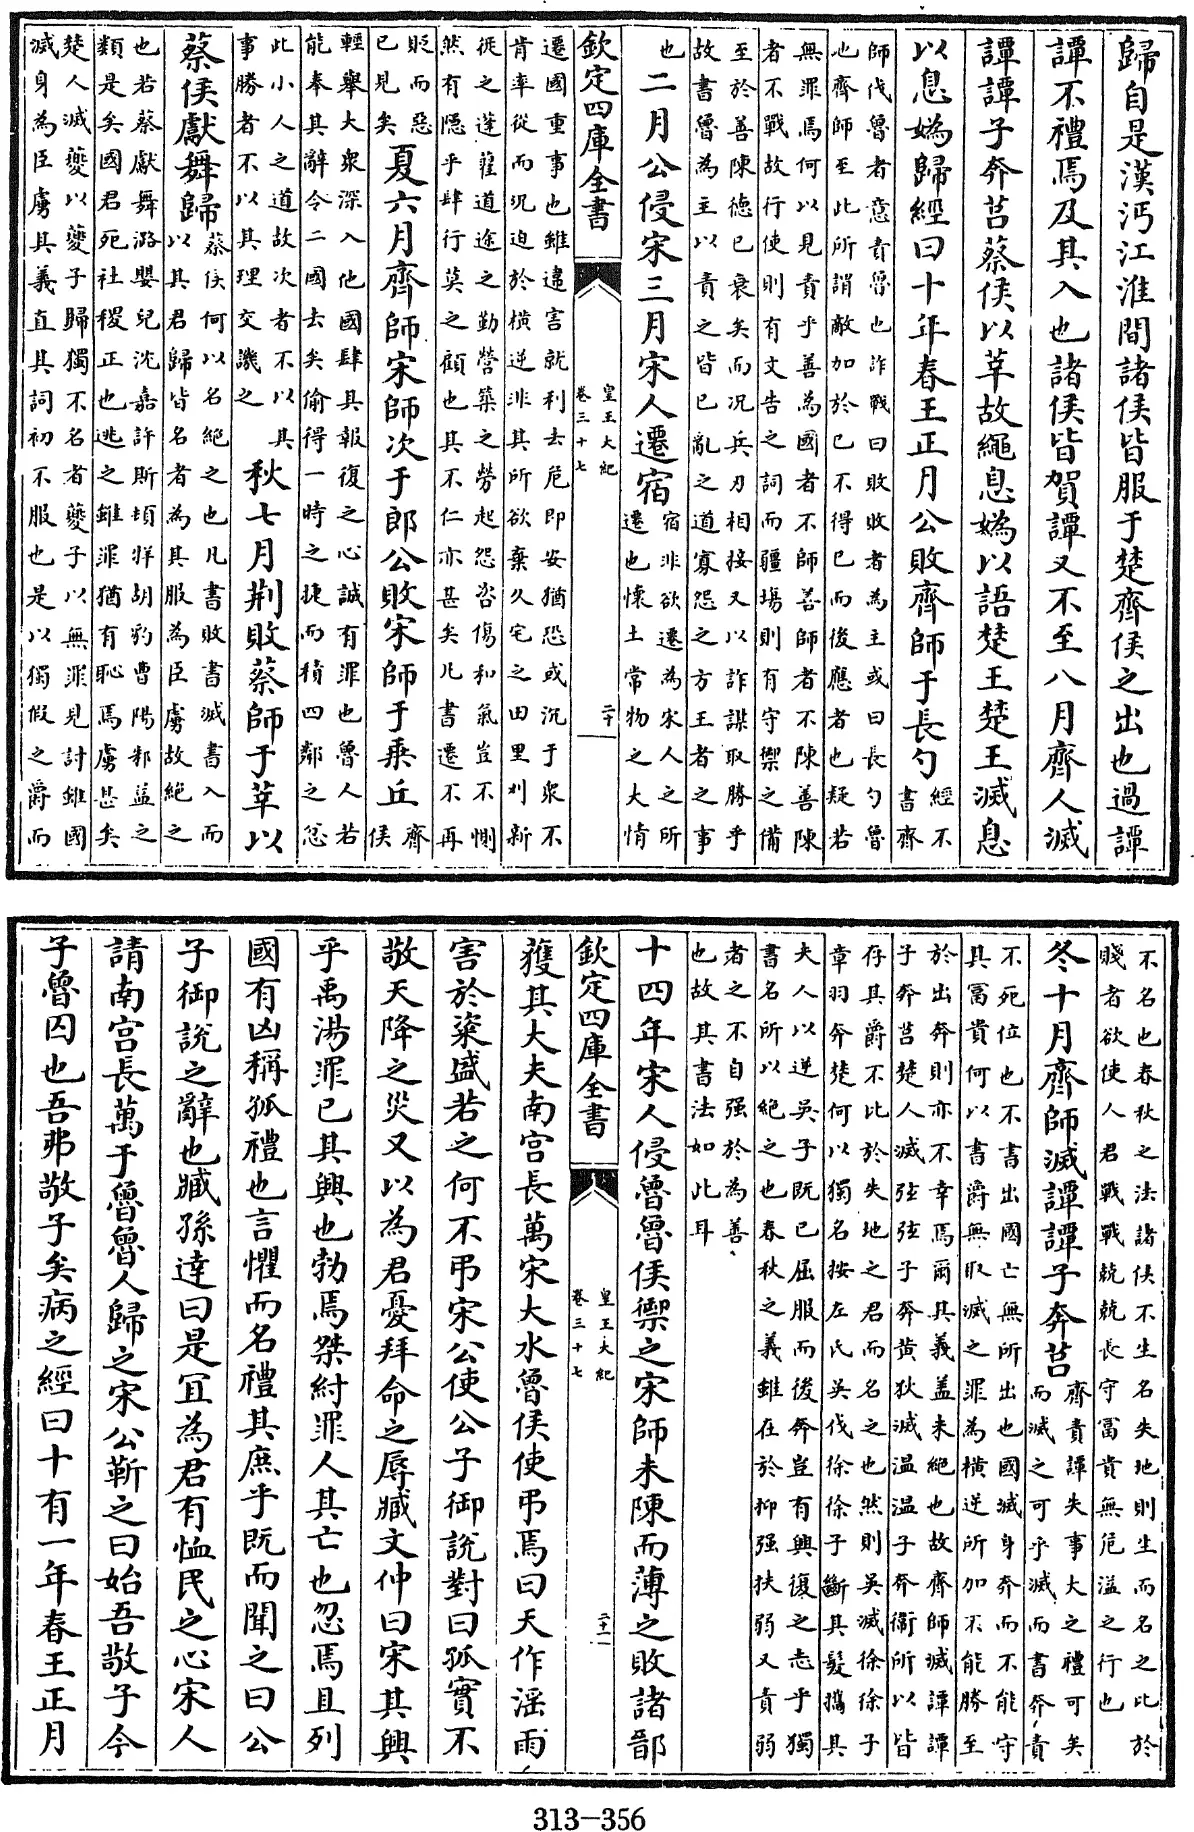 歸自是漢沔江淮間諸侯皆服于楚齊侯之出也過譚
譚不禮焉及其入也諸侯皆賀譚又不至八月齊人滅
譚譚子奔莒蔡侯以莘故繩息媯以語楚王楚王滅息
以息媯歸經曰十年春王正月公敗齊師于長勺經不
書齊
師伐魯者意責魯也詐戰曰敗敗者為主或曰長勺魯
也齊師至此所謂敵加於已不得已而後應者也疑若
無罪焉何以見責乎善為國者不師善師者不陳善陳
者不戰故行使則有文告之詞而疆場則有守禦之備
至於善陳德已衰矣而况兵刃相接又以詐謀取勝乎
故書魯為主以責之皆已亂之道寡怨之方王者之事
也二月公侵宋三月宋人遷宿宿非欲遷為宋人之所
遷也懷土常物之大情
欽定四庫全書
皇王大紀
卷三十七
二十
遷國重事也雖違害就利去危即安猶恐或沉于衆不
肯率從而况迫於橫逆非其所欲棄久宅之田里刈新
徙之蓬藋道途之勤營築之勞起怨咨傷和氣豈不惻
然有隱乎肆行莫之顧也其不仁亦甚矣凡書遷不再
貶而惡
已見矣夏六月齊師宋師次于郎公敗宋師于乗丘齊
侯
輕舉大衆深入他國肆其報復之心誠有罪也魯人若
能奉其辭令二國去矣偷得一時之捷而積四鄰之忿
此小人之道故次者不以其
事勝者不以其理交譏之秋七月荆敗蔡師于莘以
蔡侯獻舞歸蔡侯何以名絶之也凡書敗書滅書入而
以其君歸皆名者為其服為臣虜故絶之
也若蔡獻舞潞嬰兒沈嘉許斯頓牂胡豹曹陽邾益之
類是矣國君死社稷正也逃之雖罪猶有恥焉虜甚矣
楚人滅夔以夔子歸獨不名者夔子以無罪見討雖國
滅身為臣虜其義直其詞初不服也是以獨假之爵而
不名也春秋之法諸侯不生名失地則生而名之比於
賤者欲使人君戰戰兢兢長守富貴無危溢之行也
冬十月齊師滅譚譚子奔莒齊責譚失事大之禮可矣
而滅之可乎滅而書奔責
不死位也不書出國亡無所出也國滅身奔而不能守
具冨貴何以書爵無取滅之罪為橫逆所加不能勝至
於出奔則亦不幸焉爾其義盖未絕也故齊師滅譚譚
子奔莒楚人滅弦弦子奔黄狄滅温温子奔衞所以皆
存其爵不比於失地之君而名之也然則吳滅徐徐子
章羽奔楚何以獨名按左氏吳伐徐徐子斷其髮攜其
夫人以逆吳子既已屈服而後奔豈有興復之志乎獨
書名所以絶之也春秋之義雖在於抑强扶弱又責弱
者之不自强於為善
也故其書法如此耳
十四年宋人侵魯魯侯禦之宋師未陳而薄之敗諸鄑
欽定四庫全書
皇王大紀
卷三十七
二十一
獲其大夫南宫長萬宋大水魯侯使弔焉曰天作淫雨
害於粢盛若之何不弔宋公使公子御說對曰孤實不
敬天降之災又以為君憂拜命之辱臧文仲曰宋其興
乎禹湯罪已其興也勃焉桀紂罪人其亡也忽焉且列
國有凶稱孤禮也言懼而名禮其庶乎既而聞之曰公
子御說之辭也臧孫達曰是宜為君有恤民之心宋人
請南宫長萬于魯魯人歸之宋公靳之曰始吾敬子今
子魯囚也吾弗敬子矣病之經曰十有一年春王正月
313-356